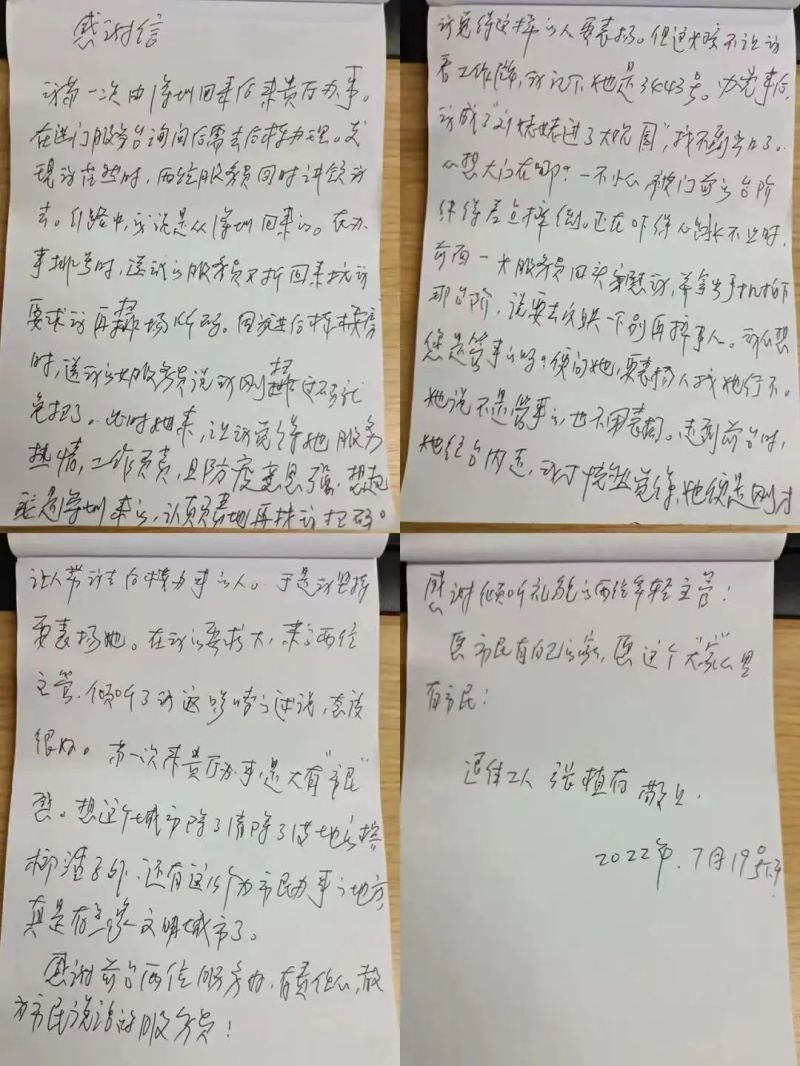 感谢信
我第一次由深圳回来后来贵厅办事。
在进门服务台询问后需去后楼办理。发
现我茫然时，两位服务员同时讲领我
去。引路中，我说是从深圳回来的。在办
事排号时，送我的服务员又折回来找我
要求我再扫场所码。因我进后楼
时，送我的服务员说我刚扫这码就
免扫了。此时她来，让我觉得她服务
热情，工作负责，且防疫意思强，想起
我是深圳来的，认真负责地再找我扫码。
我觉得这样的人要表扬。但这女孩不让我
看工作牌，我记下她是3443号。办完事后，
我成了"刘姥姥进了大观园"，找不到出口了。
心想大门在哪？一不小心被门前的台阶
绊得差点摔倒。还在吓得心跳不止时，
前面一女服务员回头安慰我，并拿出手机拍下
那台阶，说要去反映一下别再摔事人。我心想
您是管事的吗？便问她，要表扬人找她行不。
她说不是管事的，也不用表扬。走到前台时，
她往台内走，我才恍然觉得，她便是刚才
让人带我去后楼办事的人。于是我坚持
要表扬她。在我的要求下，来了两位
主管，倾听了我这啰嗦的述说，态度
很好。第一次来贵厅办事，是大有"市民"
感。想这个城市除了清除了满地的槟
榔渣子外，还有这个为市民办事的地方，
真是在全家文明城市了。
感谢前台两位服务好，有责任心，敢
为市民说话的服务员！
感谢倾听礼貌的两位年轻主管！
愿市民有自己的家，愿这个大"家"心里
有市民！
退休工人 张植存 敬上.
2022年.7月19号